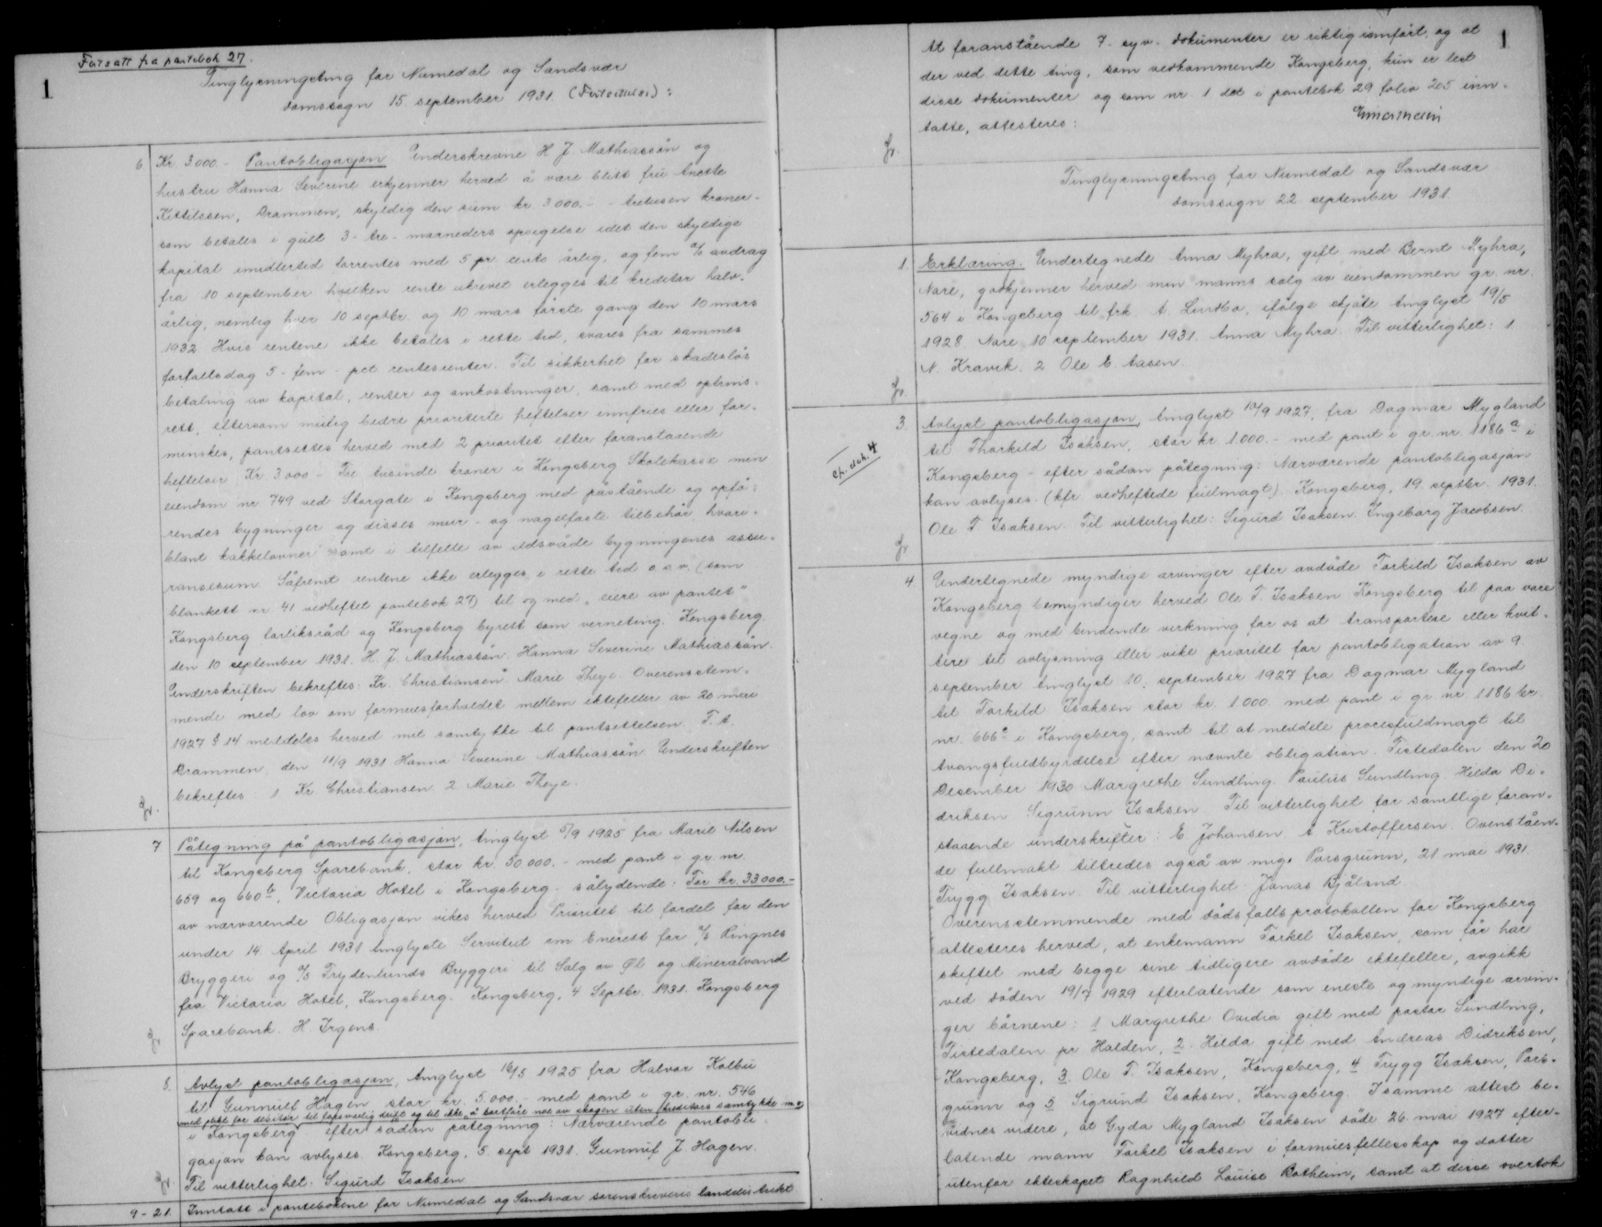 Fortsatt fra pantebok 27.
1
Tinglysningsting for Numedal og Sandsvær
domssogn 15 september 1931. (Fortsettelse):
6 Kr. 3000.- Pantobligasjon. Underskrevne H. J. Mathiassøn og
hustru Hanna Severine erkjenner herved å være blitt fru Anette
Kittilssen, Drammen, skyldig den sum kr. 3000.- - tretusen kroner -
som betales i gull 3 - tre - maaneders opsigelse idet den skyldige
kapital imidlertid forrentes med 5 pr cento årlig, og fem % avdrag
fra 10 september hvilken rente ukrevet erlegges til kreditor halv-
årlig, nemlig hver 10 septbr. og 10 mars første gang den 10 mars
1932. Hvis rentene ikke betales i rette tid, svares fra sammes
forfallsdag 5 - fem - pct rentesrenter. Til sikkerhet for skadesløs
betaling av kapital, renter og omkostninger, samt med optrins-
rett, eftersom mulig bedre prioriterte heftelser innfries eller for-
minskes, pantsettes herved med 2 prioritet efter foranstaaende
heftelser: Kr. 3000 - Tre tusinde kroner i Kongsberg Skolekasse min
eiendom nr 749 ved Storgate i Kongsberg med påstående og opfø-
rendes bygninger og disses mur- og nagelfaste tilbehør hvori-
blant kakkelovner samt i tilfelle av ildsvåde bygningenes assu-
ransesum. Såfremt rentene ikke erlegges i rette tid o.s.v. (som
blankett nr 41 vedheftet pantebok 27) til og med „eiere av pantet"
Kongsberg forliksråd og Kongsberg byrett som verneting. Kongsberg
den 10 september 1931. H. J. Mathiassøn. Hanna Severine Mathiassøn.
Underskriften bekreftes: Kr. Christiansen. Marie Theye. Overensstem-
mende med lov om formuesforholdet mellem ektefeller av 20 mai
1927 § 14 meddeles herved mit samtykke til pantsettelsen. T. t.
Drammen, den 11/9 1931 Hanna Severine Mathiassøn. Underskriften
bekreftes: 1 Kr. Christiansen 2. Marie Theye.
7 Påtegning på pantobligasjon, tinglyst 5/9 1925 fra Marie Nilsen
til Kongsberg Sparebank, stor kr. 50 000.- med pant i gr. nr.
659 og 660b, Victoria Hotel i Kongsberg - sålydende: For kr. 33000.-
av nærværende Obligasjon vikes herved Prioritet til fordel for den
under 14 April 1931 tinglyste Servitut om Enerett for A/S Ringnes
Bryggeri og A/S Frydenlunds Bryggeri til Salg av Øl og Mineralvand
fra Victoria Hotel, Kongsberg. Kongsberg, 4 Septbr. 1931. Kongsberg
Sparebank. H. Irgens.
8. Avlyst pantobligasjon, tinglyst 16/5 1925 fra Halvor Kolbu
til Gunnulf Hagen stor kr. 5.000.- med pant i gr. nr. 546
i Kongsberg efter sådan påtegning: Nærværende pantobli-
gasjon kan avlyses. Kongsberg, 5 sept 1931. Gunnulf J. Hagen.
Til vitterlighet: Sigurd Isaksen
9 - 21. Inntatt i pantebøkene for Numedal og Sandsvær sorenskriveris landdistrikt
1
At foranstående 7 - syv - dokumenter er riktig innført, og at
der ved dette ting, som vedkommende Kongsberg, kun er lest
disse dokumenter og som nr. 1 det i pantebok 29 folio 205 inn-
tatte, attesteres:
Tinglysningsting for Numedal og Sandsvær
domssogn 22 september 1931.
1. Erklæring. Undertegnede Anna Myhra, gift med Bernt Myhra,
Nore, godkjenner herved min manns salg av eiendommen gr. nr.
564 i Kongsberg til frk. A. Lindbo, ifølge skjøte tinglyst 19/5
1928. Nore 10 september 1931. Anna Myhra. Til vitterlighet: 1.
N. Kravik. 2 Ole E. Aasen.
3. Avlyst pantobligasjon, tinglyst 10/9 1927, fra Dagmar Mygland
til Thorkild Isaksen, stor kr. 1.000.- med pant i gr. nr. 1186a i
Kongsberg - efter sådan påtegning: Nærværende pantobligasjon
cfr. dok. 4
kan avlyses. (kfr. vedheftede fullmagt). Kongsberg, 19. septbr. 1931.
Ole T. Isaksen. Til vitterlighet: Sigurd Isaksen. Ingeborg Jacobsen.
4 Undertegnede myndige arvinger efter avdøde Torkild Isaksen av
Kongsberg bemyndiger herved Ole T. Isaksen Kongsberg til paa vore
vegne og med bindende virkning for os at transportere eller kvit-
tere til avlysning eller vike prioritet for pantobligation av 9
september tinglyst 10. september 1927 fra Dagmar Mygland
til Torkild Isaksen stor kr. 1.000 med pant i gr. nr. 1186 br.
nr. 666a i Kongsberg, samt til at meddele procesfuldmagt til
tvangsfuldbyrdelse efter nævnte obligation. Tistedalen den 20
Desember 1930 Margrethe Sundling. Paulus Sundling. Hilda Di-
driksen. Sigrunn Isaksen. Til vitterlighet for samtlige foran-
staaende underskrifter: E. Johansen. A Kristoffersen. Ovenståen-
de fullmakt tiltredes også av mig. Porsgrunn, 21 mai 1931.
Trygg Isaksen. Til vitterlighet: Jonas Bjålnd.
Overensstemmende med dødsfallsprotokollen for Kongsberg
attesteres herved, at enkemann Torkel Isaksen, som før har
skiftet med begge sine tidligere avdøde ektefeller, avgikk
ved døden 19/7 1929 efterlatende som eneste og myndige arvin-
ger børnene: 1 Margrethe Ovidia gift med pastor Sundling,
Tistedalen pr Halden, 2. Hilda gift med Andreas Didriksen,
Kongsberg, 3. Ole T. Isaksen, Kongsberg, 4 Trygg Isaksen, Pors-
grunn og 5 Sigrund Isaksen, Kongsberg. I samme attest be-
vidnes videre, at Gyda Mygland Isaksen døde 26. mai 1927 efter-
latende mann Torkel Isaksen i formuesfellesskap og datter
utenfor ekteskapet Ragnhild Louise Botheim, samt at disse overtok